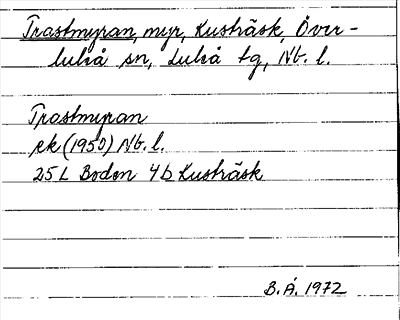 Trastmyran, myr, Kusträsk, Över-
luleå sn, Luleå tg, Nb. l.
Trastmyran
ek (1950) Nb. l.
25 L Boden 4 b Kusträsk
B. Å. 1972